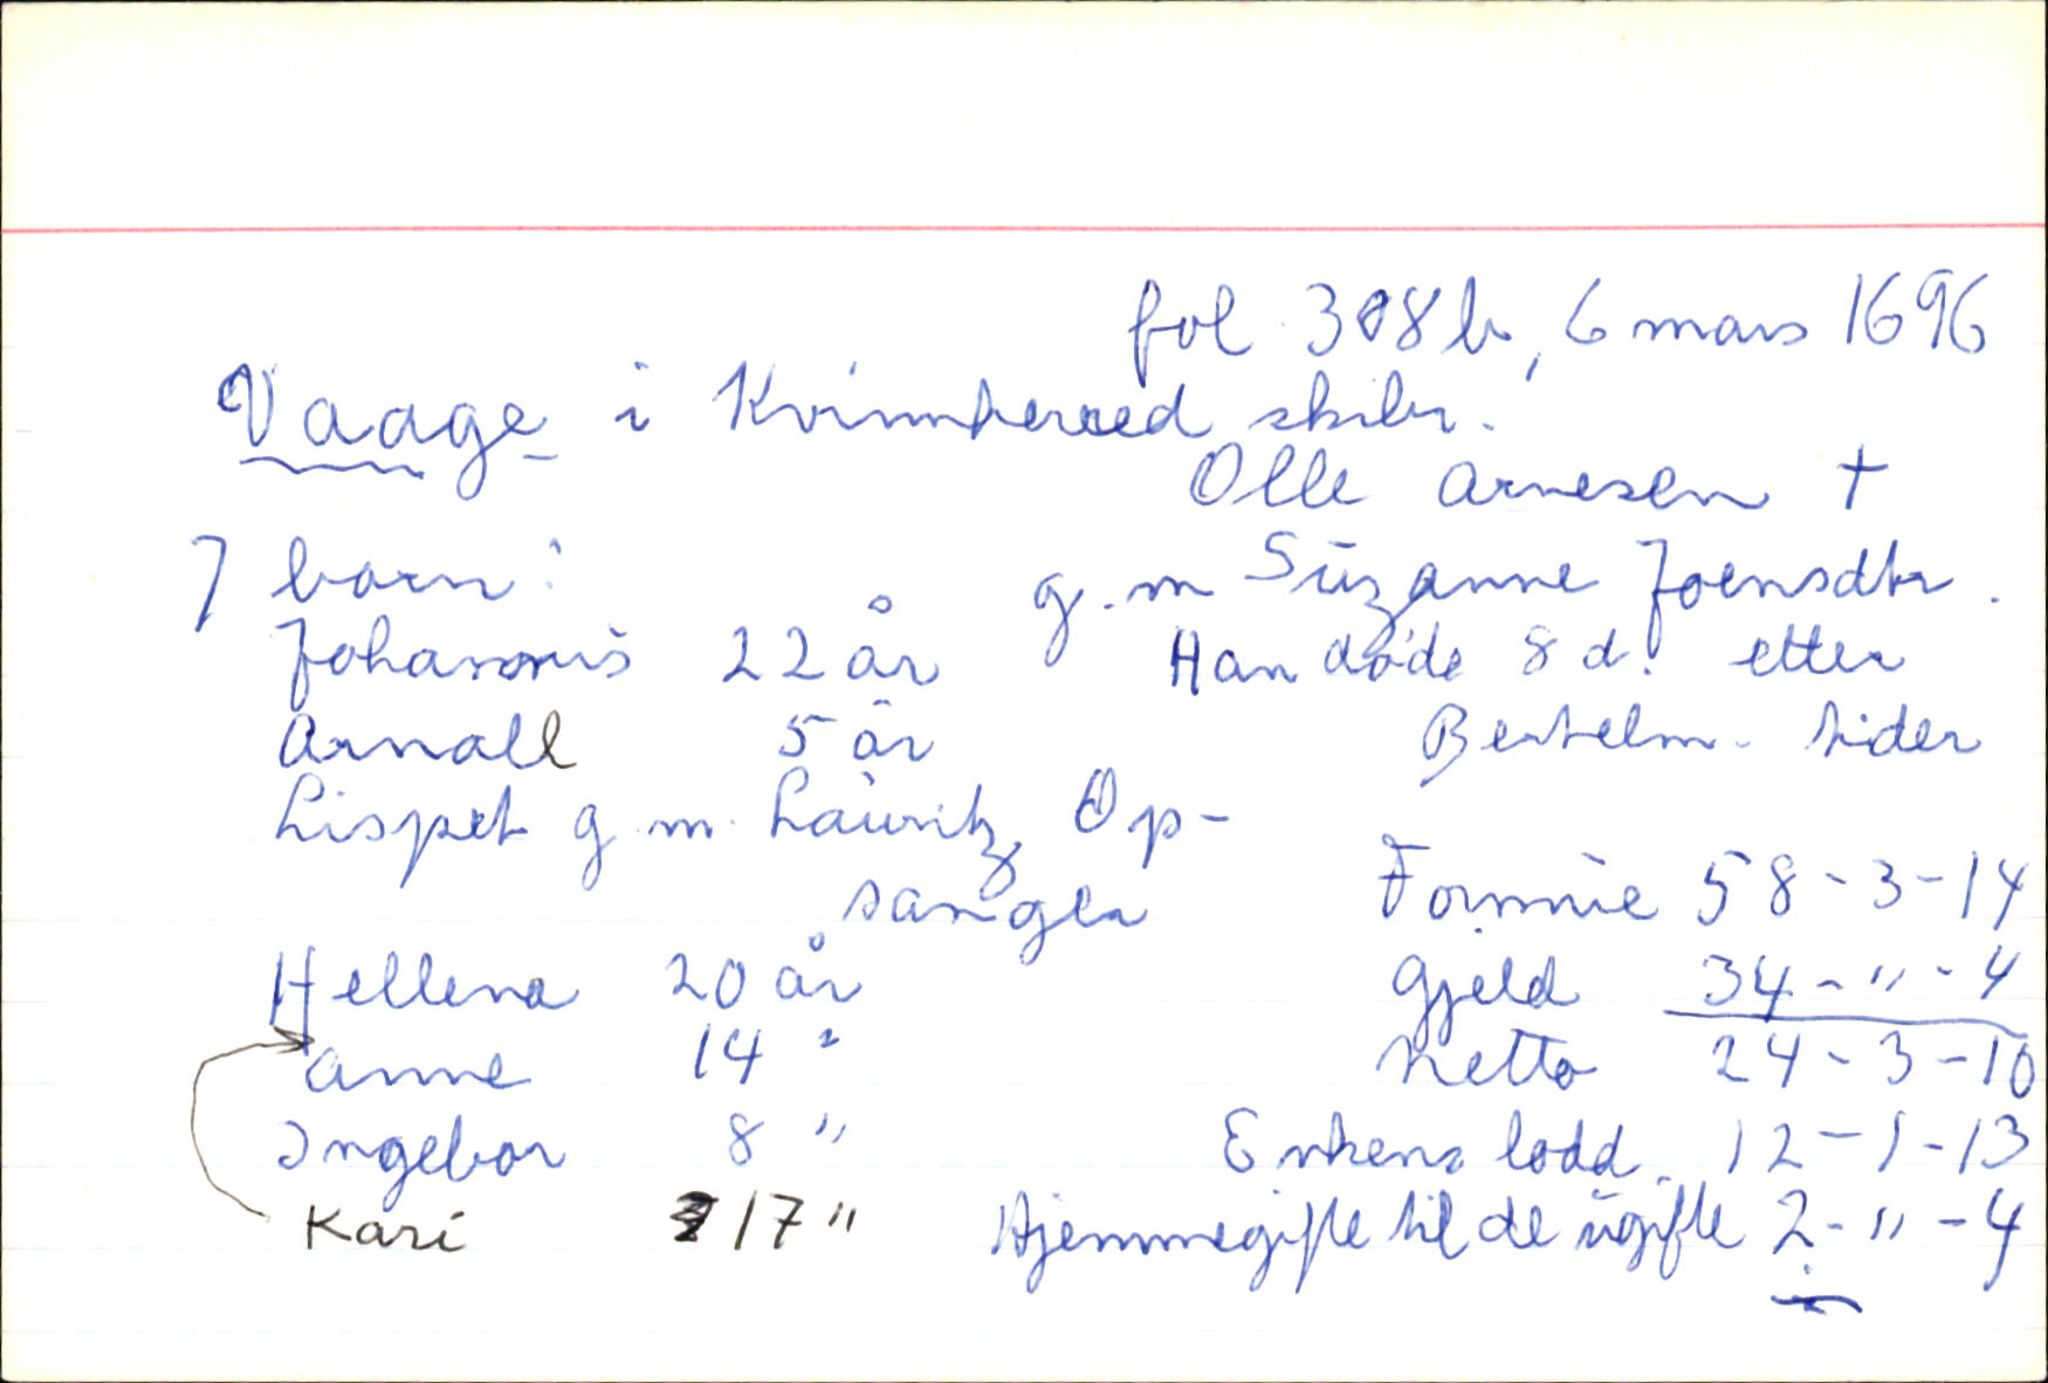 fol 308b, 6 mars 1696
Vaage i Kvinnherred skibr.
Olle Arnesen †
7 barn:
g.m Suzanne Joensdtr.
Johannis 22 år
Han døde 8 d. etter
Arnall 5 år
Bertelm. tider
Lispet g.m. Lauritz Op-
sanger
Formue 58-3-14
Hellena 20 år
Gjeld 34-"-4
Anne 14 "
Netto 24-3-10
Ingebor 8 "
Enkens lodd 12-1-13
Kari 17 "
Hjemmegifte til de ugifte 2-"-4